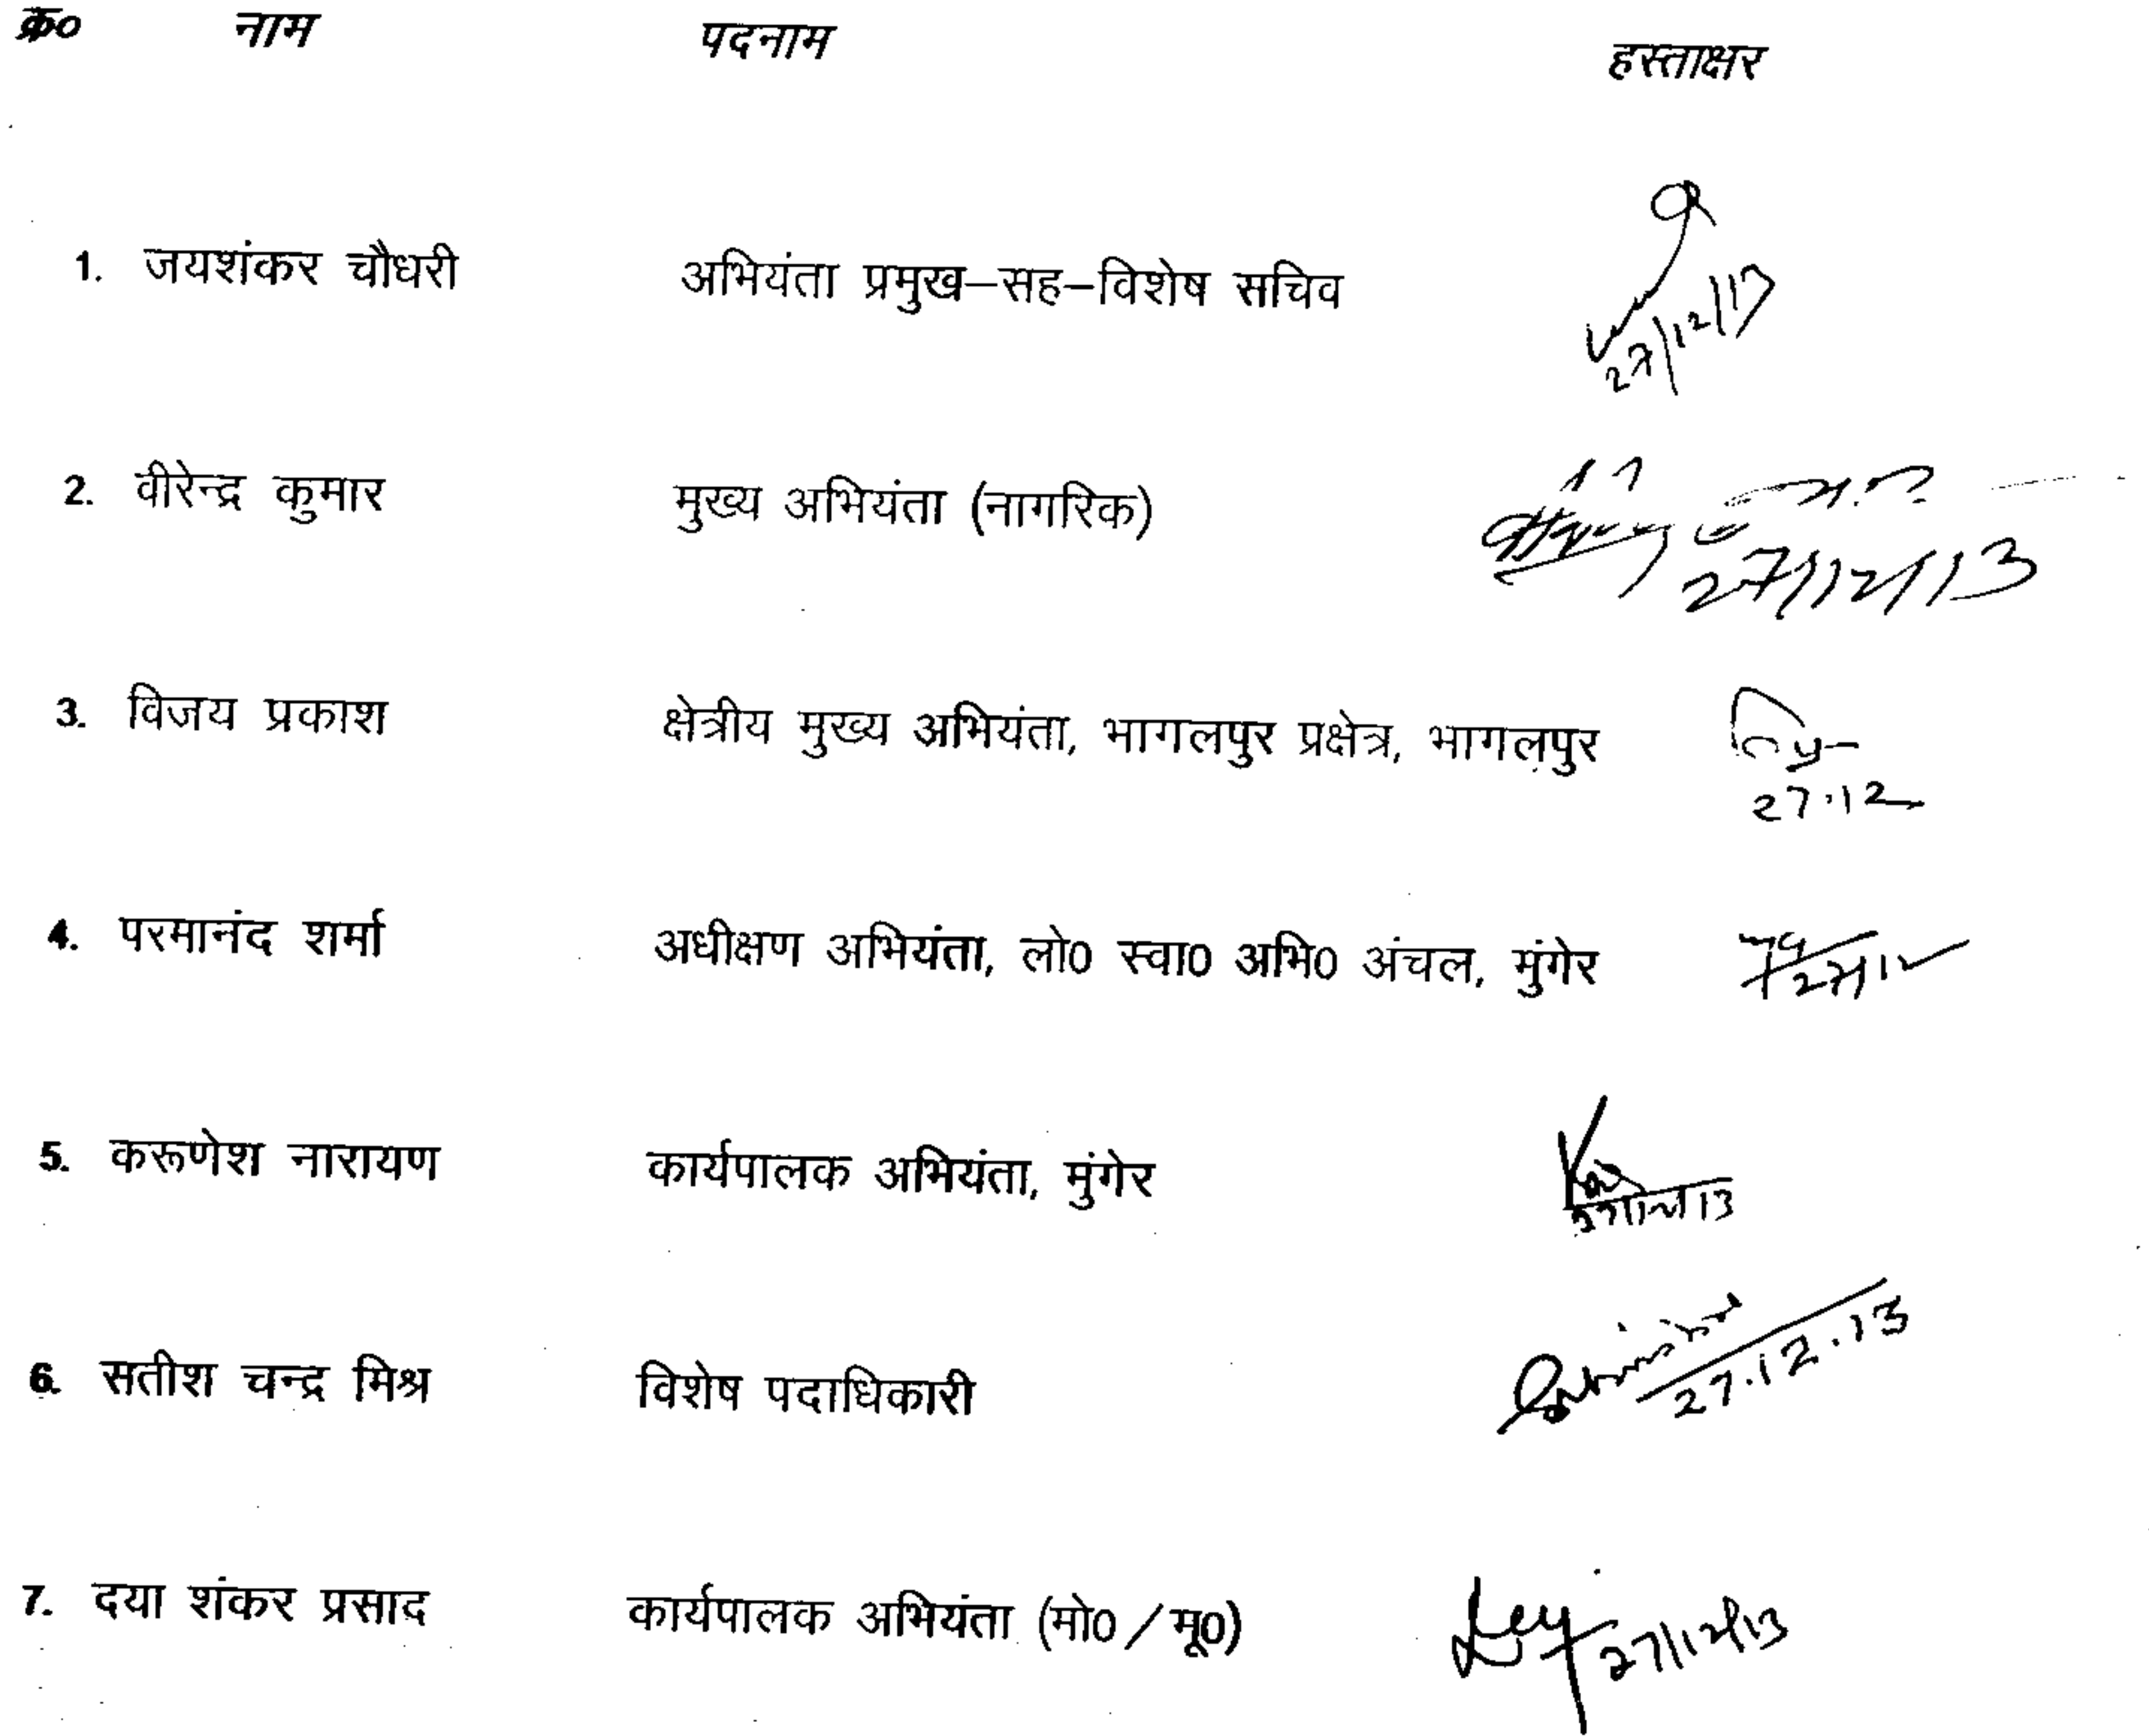 क्र0 नाम पदनाम हस्ताक्षर
1. जयशंकर चौधरी अभियंता प्रमुख–सह–विशेष सचिव 27/12/13
2. वीरेन्द्र कुमार मुख्य अभियंता (नागरिक)
27/12/13
3. विजय प्रकाश क्षेत्रीय मुख्य अभियंता, भागलपुर प्रक्षेत्र, भागलपुर
27.12
4. परमानंद शर्मा अधीक्षण अभियंता, लो0 स्वा0 अभि0 अंचल, मुंगेर 27/12
5. करूणेश नारायण कार्यपालक अभियंता, मुंगेर
6. सतीश चन्द्र मिश्र विशेष पदाधिकारी 27.12.13
7. दया शंकर प्रसाद कार्यपालक अभियंता (मो0 / मू0) 27/12/13